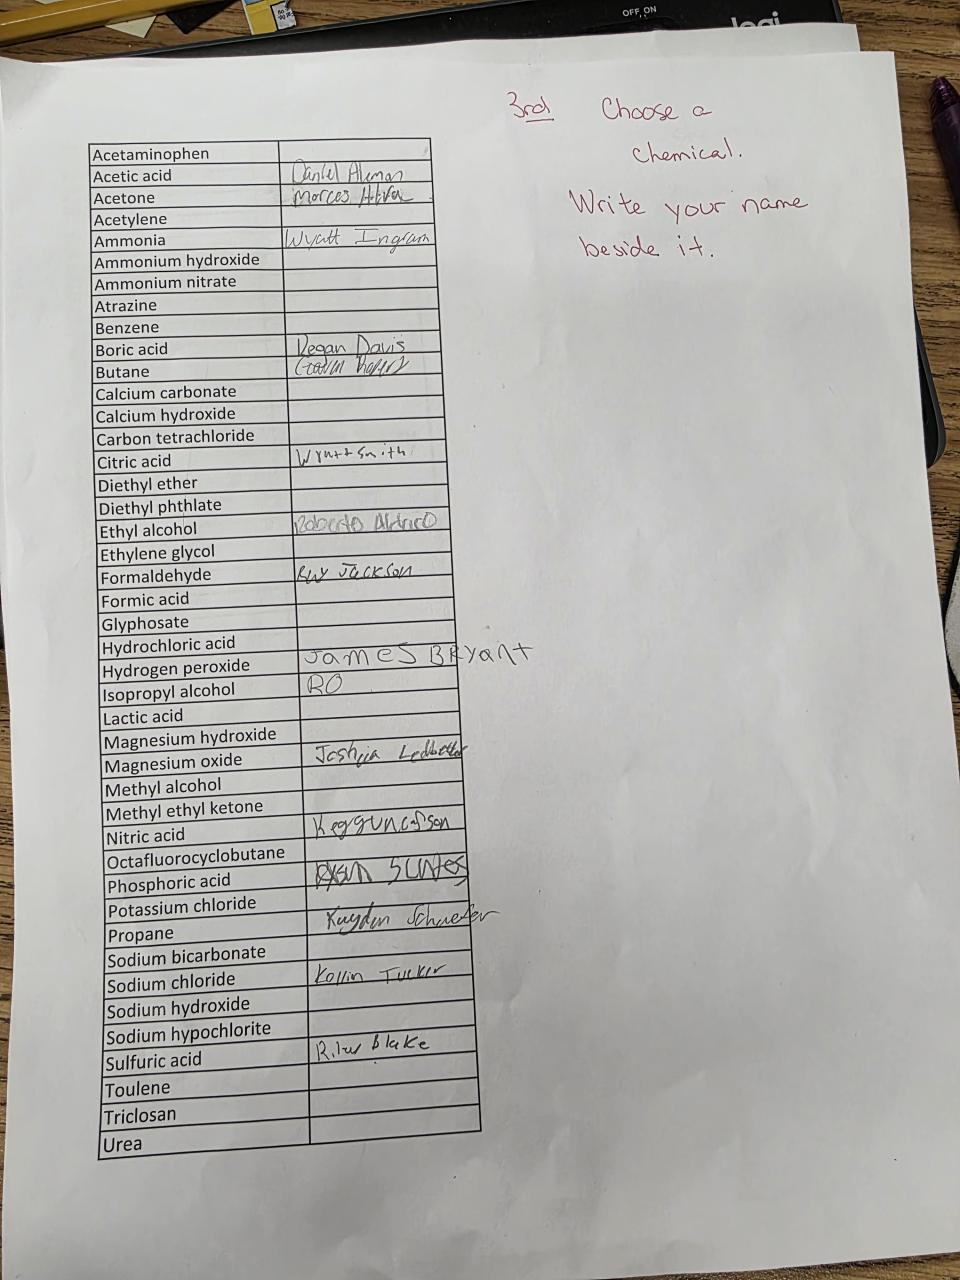 OFF ON
logi
3rd Choose a
chemical.
Write your name
beside it.
Acetaminophen
Acetic acid Daniel Aleman
Acetone Marcos
Acetylene
Ammonia Wyatt Ingram
Ammonium hydroxide
Ammonium nitrate
Atrazine
Benzene
Boric acid Regan Davis
Butane
Calcium carbonate
Calcium hydroxide
Carbon tetrachloride
Citric acid Wyatt Smith
Diethyl ether
Diethyl phthlate
Ethyl alcohol Roberto
Ethylene glycol
Formaldehyde Jackson
Formic acid
Glyphosate
Hydrochloric acid
Hydrogen peroxide James Bryant
Isopropyl alcohol RO
Lactic acid
Magnesium hydroxide
Magnesium oxide Joshua Ledbetter
Methyl alcohol
Methyl ethyl ketone
Nitric acid
Octafluorocyclobutane
Phosphoric acid
Potassium chloride
Propane Kayden Schaefer
Sodium bicarbonate
Sodium chloride Kollin Tucker
Sodium hydroxide
Sodium hypochlorite
Sulfuric acid Blake
Toulene
Triclosan
Urea